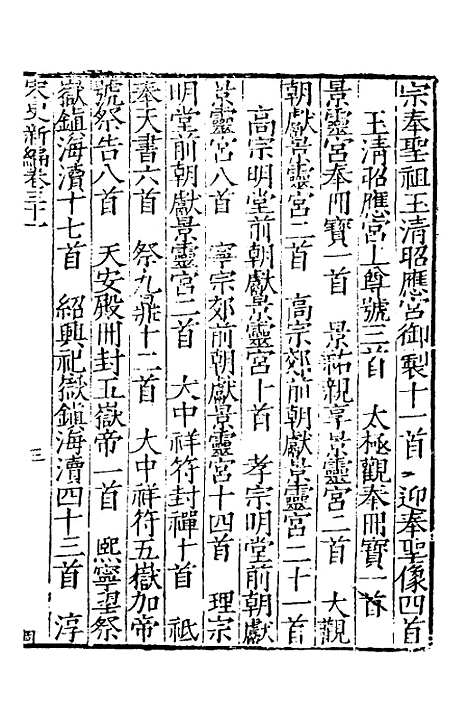 宗奉聖祖玉清昭應宮御製十一首　迎奉聖像四首
玉清昭應宮上尊號三首　太極觀奉冊寶一首
景靈宮奉冊寶一首　景祐親享景靈宮二首　大觀
朝獻景靈宮二首　高宗郊前朝獻景靈宮二十一首
高宗明堂前朝獻景靈宮十首　孝宗明堂前朝獻
景靈宮八首　寧宗郊前朝獻景靈宮十四首　理宗
明堂前朝獻景靈宮二首　大中祥符封禪十首　祇
奉天書六首　祭九鼎十二首　大中祥符五嶽加帝
號祭告八首　天安殿冊封五嶽帝一首　熙寧望祭
嶽鎮海瀆十七首　紹興祀嶽鎮海瀆四十三首　淳
宋史新編卷三十一　三